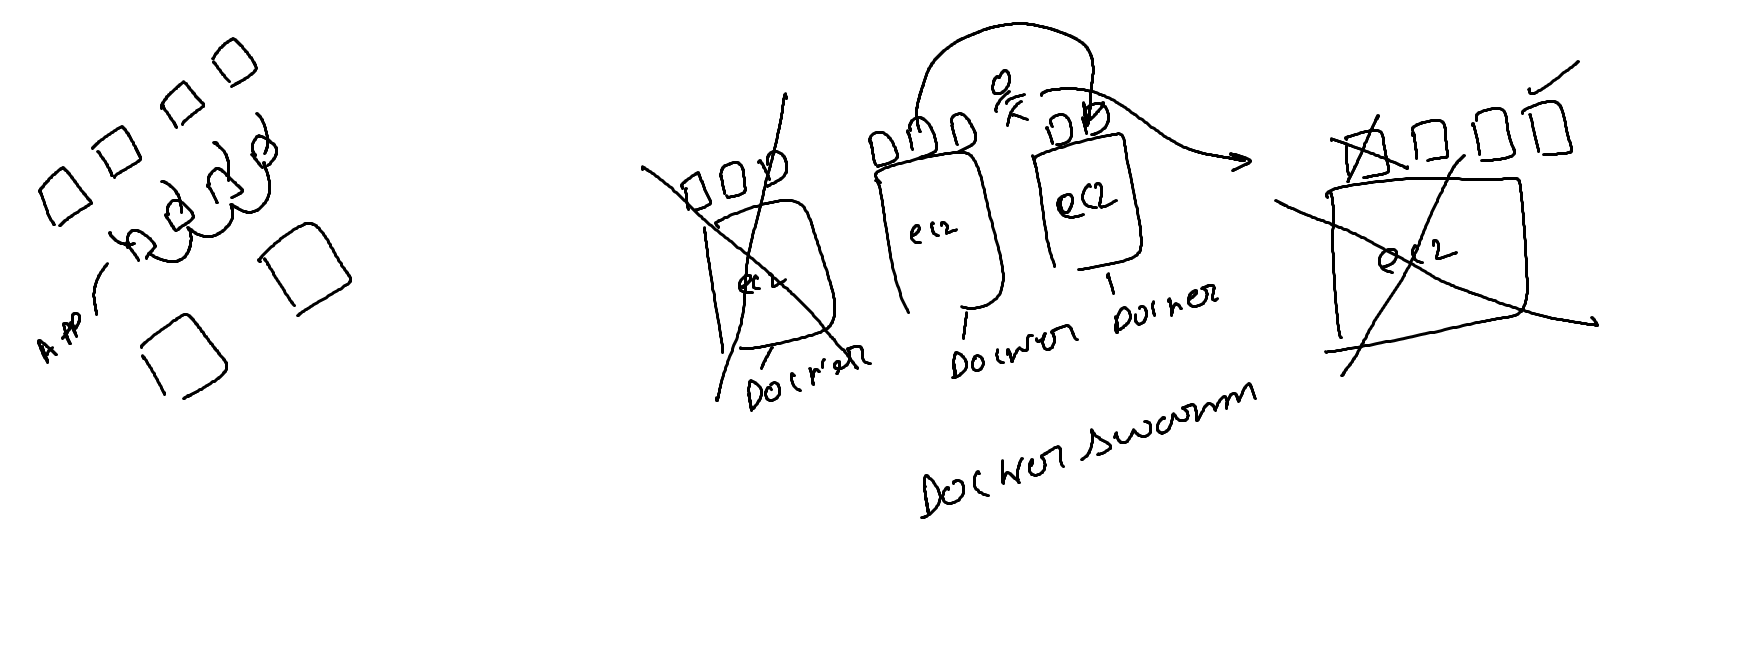 APP
ec2
Docker
ec2
Docker
ec2
Docker
ec2
Docker swarm